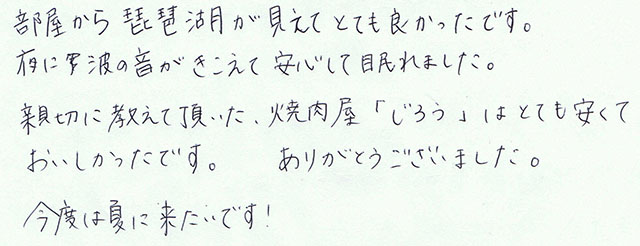 部屋から琵琶湖が見えてとても良かったです。
夜には波の音がきこえて安心して眠れました。
親切に教えて頂いた、焼肉屋「じろう」はとても安くて
おいしかったです。　ありがとうございました。
今度は夏に来たいです！